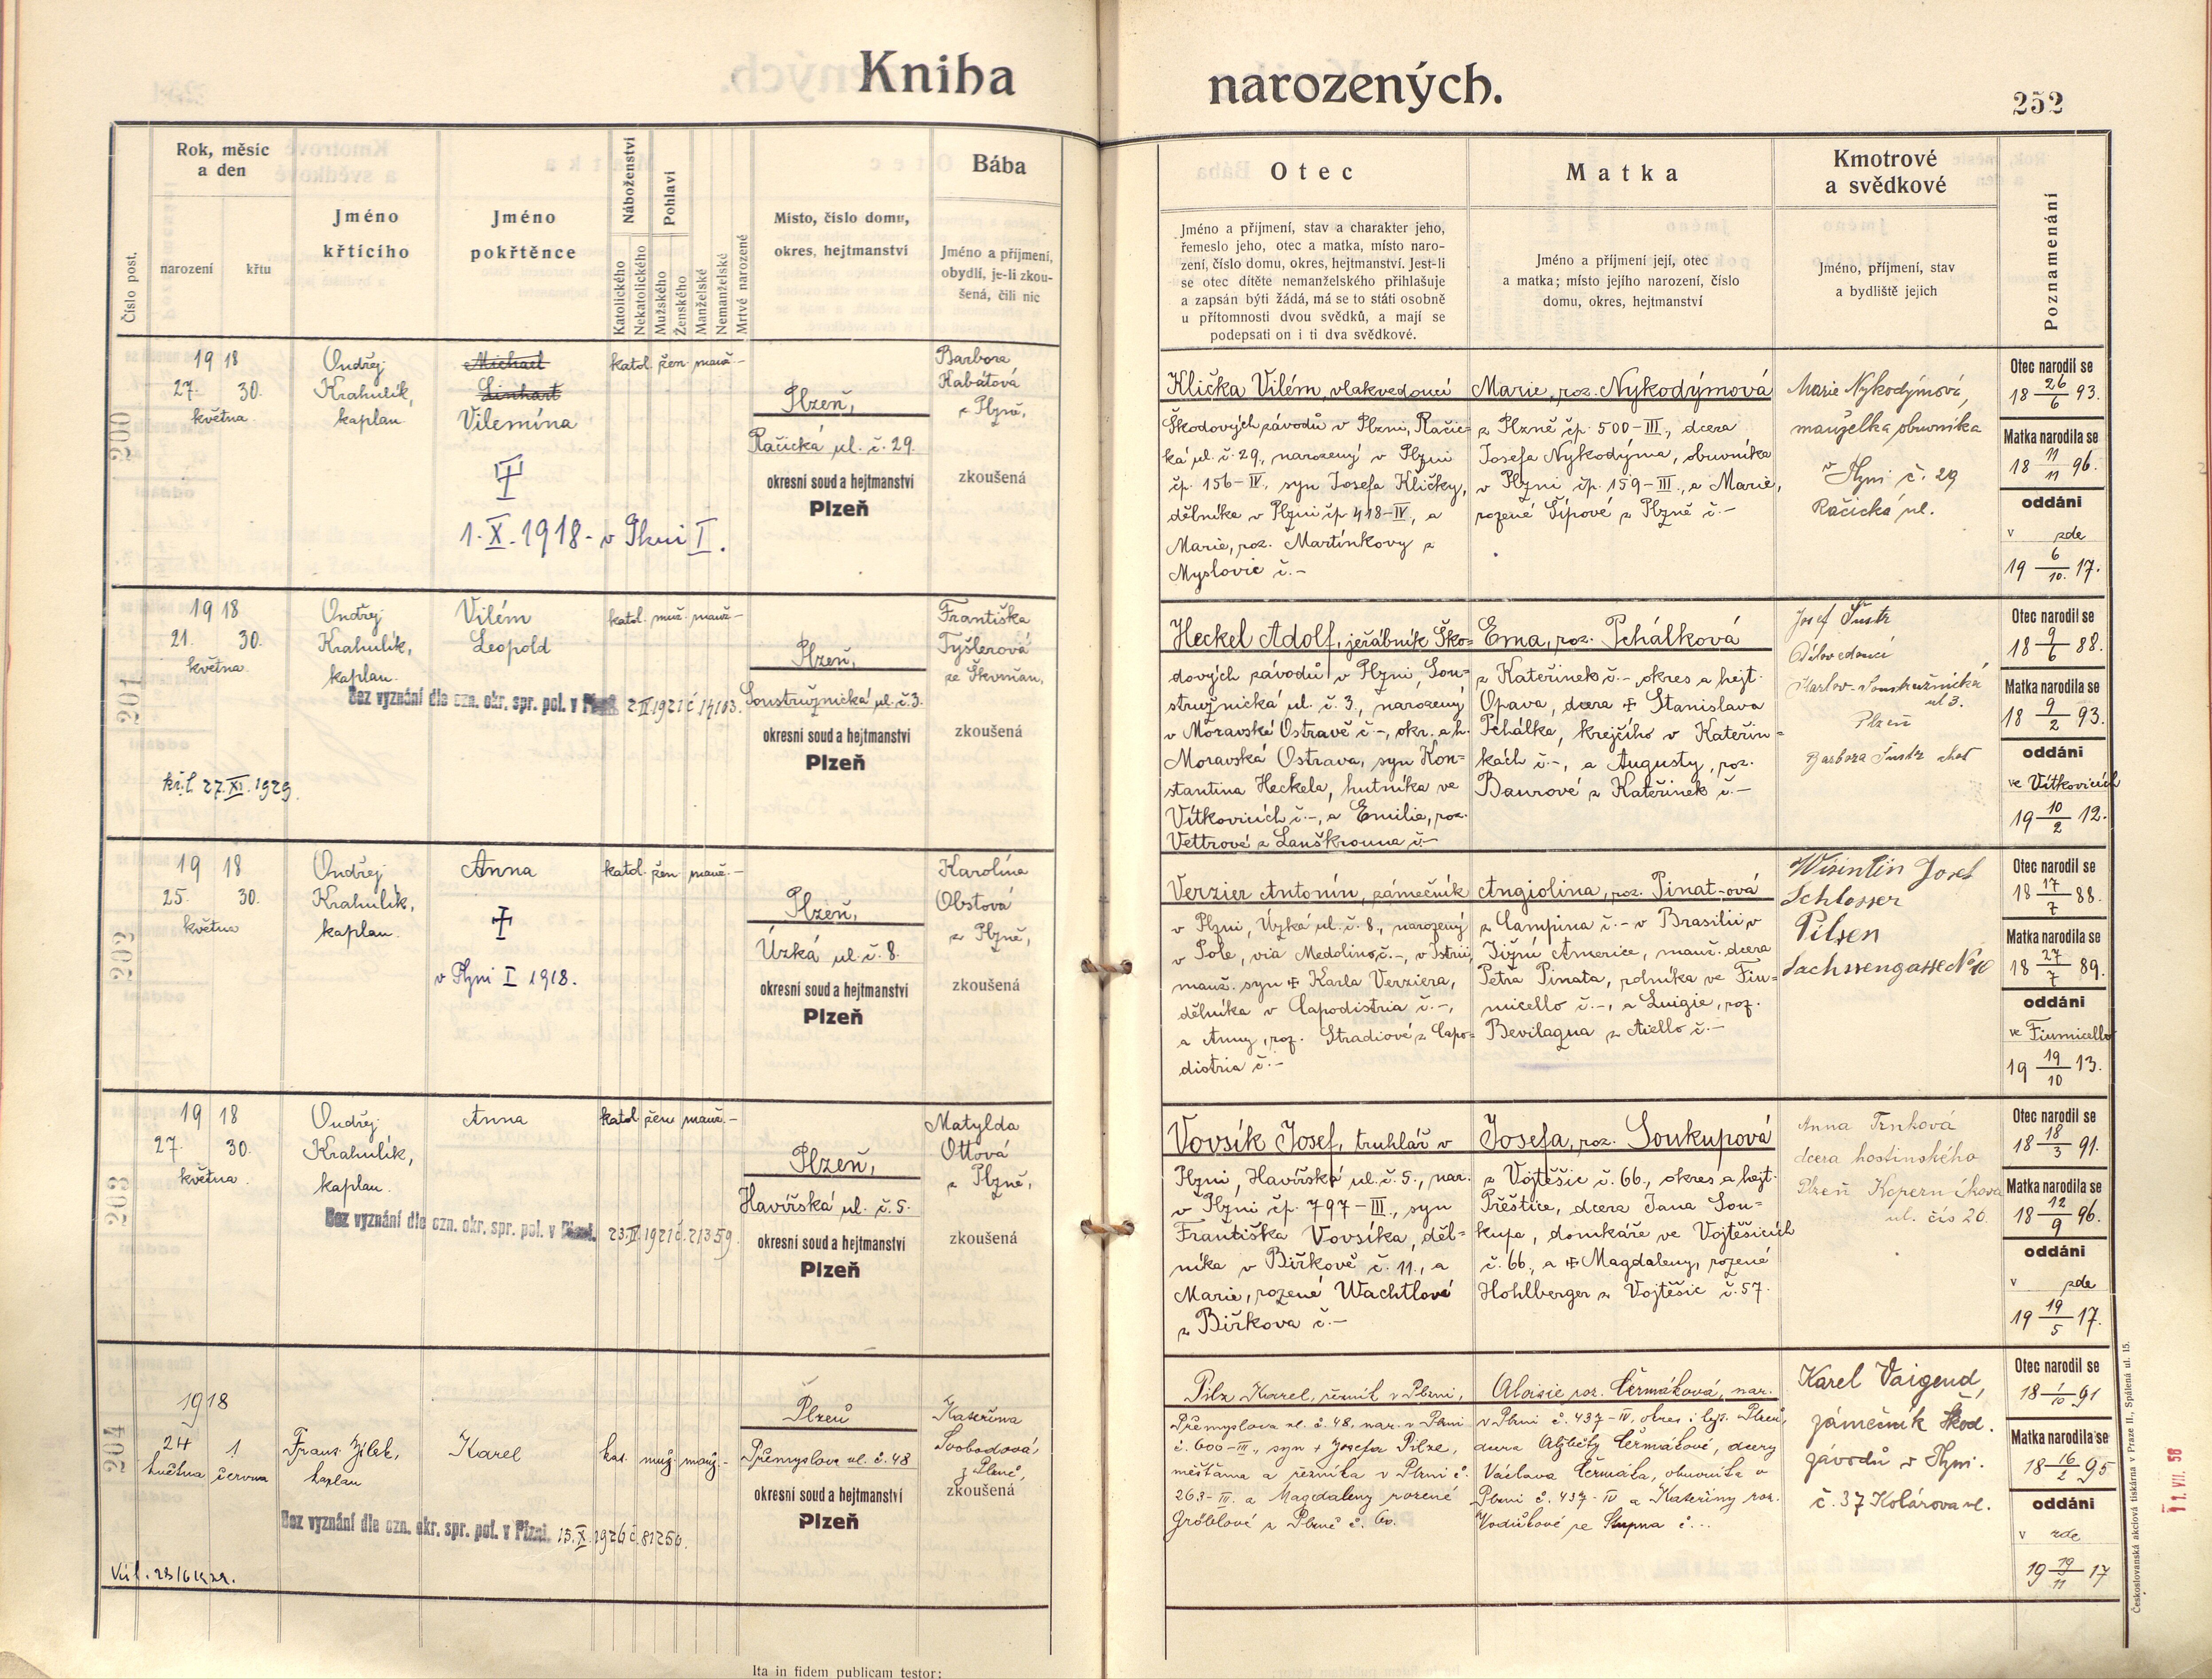 Kniha narozených.
252
Číslo post.
Rok, měsíc
a den
narození
křtu
Jméno
křtícího
Jméno
pokřtěnce
Náboženství
Katolického
Nekatolického
Pohlaví
Mužského
Ženského
Manželské
Nemanželské
Mrtvě narozené
Místo, číslo domu,
okres, hejtmanství
Bába
Jméno a příjmení,
obydlí, je-li zkou-
šená, čili nic
Otec
Jméno a příjmení, stav a charakter jeho,
řemeslo jeho, otec a matka, místo naro-
zení, číslo domu, okres, hejtmanství. Jest-li
se otec dítěte nemanželského přihlašuje
a zapsán býti žádá, má se to státi osobně
u přítomnosti dvou svědků, a mají se
podepsati on i ti dva svědkové.
Matka
Jméno a příjmení její, otec
a matka; místo jejího narození, číslo
domu, okres, hejtmanství
Kmotrové
a svědkové
Jméno, příjmení, stav
a bydliště jejich
Poznamenání
200
1918
27. 30.
května
Ondřej
Krahulík,
kaplan
Michael
Linhart
Vilemína
1. X. 1918 - v Plzni I.
katol. žen. manž. -
Plzeň,
Račická ul. č. 29.
okresní soud a hejtmanství
Plzeň
Barbora
Kabátová
z Plzně,
zkoušená
Klička Vilém, vlakvedoucí
Škodových závodů v Plzni, Račic-
ká ul. č. 29., narozený v Plzni
čp. 156-IV., syn Josefa Kličky,
dělníka v Plzni čp 418-IV, a
Marie, roz. Martínkovy z
Myslovic č. -
Marie, roz. Nykodýmová
z Plzně čp. 500-III., dcera
Josefa Nykodýma, obuvníka
v Plzni čp. 159-III., a Marie,
rozené Šípové z Plzně č. -
Marie Nykodýmová,
manželka obuvníka
v Plzni č. 29
Račická ul.
Otec narodil se
18 26/6 93.
Matka narodila se
18 11/11 96.
oddáni
v zde
19 6/10. 17.
201
1918
21. 30.
května
kř. l. 27. XI. 1929
Ondřej
Krahulík,
kaplan.
Vilém
Leopold
Bez vyznání dle ozn. okr. spr. pol. v Plzni 2. II. 1921 č. 14103.
katol. muž. manž. -
Plzeň,
Soustružnická ul. č. 3.
okresní soud a hejtmanství
Plzeň
Františka
Tyšlerová
ze Škvrňan,
zkoušená
Heckel Adolf, jeřábník Ško-
dových závodů v Plzni, Sou-
stružnická ul. č. 3., narozený
v Moravské Ostravě č -, okr. a h.
Moravská Ostrava, syn Kon-
stantina Heckela, hutníka ve
Vítkovicích č. -, a Emilie, roz.
Vettrové z Lanškrouna č -
Ema, roz. Pchálková
z Kateřinek č. -, okres a hejt.
Opava, dcera Stanislava
Pchálka, krejčího v Kateřin-
kách č. -, a Augusty, roz.
Baurové z Kateřinek č. -
Josef Šustr
Dílovedoucí
Karlov - Soustružnická
ul 3.
Plzeň
Barbora Šustr choť
Otec narodil se
18 9/6 88.
Matka narodila se
18 9/2 93.
oddáni
ve Vítkovicích
19 10/2 12.
202
1918
25. 30.
května
Ondřej
Krahulík,
kaplan.
Anna
v Plzni I 1918.
katol. žen. manž. -
Plzeň,
Úzká ul. č. 8.
okresní soud a hejtmanství
Plzeň
Karolína
Obstová
z Plzně,
zkoušená
Verzier Antonín, zámečník
v Plzni, Úzká ul. č. 8., narozený
v Pole, via Medolino, č. -, v Istrii,
manž. syn Karla Verziera,
dělníka v Capodistria č. -,
a Anny, roz. Stradiové z Capo-
distria č. -
Angiolina, roz. Pinat-ová
z Campina č. - v Brasilii v
Jižní Americe, manž. dcera
Petra Pinata, rolníka ve Fiu-
micello č. -, a Luigie, roz.
Bevilaqua z Aiello č. -
Wisintin Josef
Schlosser
Pilsen
Sachssengasse No 10
Otec narodil se
18 17/7 88.
Matka narodila se
18 27/7 89.
oddáni
ve Fiumicello
19 19/10 13.
203
1918
27. 30.
května
Ondřej
Krahulík,
kaplan.
Anna
Bez vyznání dle ozn. okr. spr. pol. v Plzni. 23. IV. 1921 č. 21359.
katol žen manž. -
Plzeň,
Havířská ul. č. 5.
okresní soud a hejtmanství
Plzeň
Matylda
Ottová
z Plzně,
zkoušená
Vovsík Josef, truhlář v
Plzni, Havířská ul. č. 5., nar.
v Plzni čp. 797-III., syn
Františka Vovsíka, děl-
níka v Biřkově č. 11., a
Marie, rozené Wachtlové
z Biřkova č. -
Josefa, roz. Soukupová
z Vojtěšic č. 66., okres a hejt.
Přeštice, dcera Jana Sou-
kupa, domkáře ve Vojtěšicích
č. 66., a Magdaleny, rozené
Hohlberger z Vojtěšic č. 57.
Anna Trnková
dcera hostinského
Plzeň Koperníkova
ul. čís 26.
Otec narodil se
18 18/3 91.
Matka narodila se
18 12/9 96.
oddáni
v zde
19 19/5 17.
204
1918
24 1
května června
Frant. Jílek,
kaplan
Karel
Bez vyznání dle ozn. okr. spr. pol. v Plzni. 15. X. 1926 č. 81250.
kat. muž. manž. -
Plzeň
Přemyslova ul. č. 48
okresní soud a hejtmanství
Plzeň
Kateřina
Svobodová,
z Plzně,
zkoušená
Pilz Karel, řezník v Plzni,
Přemyslova ul. č. 48, nar. v Plzni
č. 600-III., syn + Josefa Pilze,
měšťana a řezníka v Plzni č.
263-III. a Magdaleny rozené
Gröblové z Plzně č. 60.
Aloisie roz. Čermáková, nar.
v Plzni č. 437-IV, okres i hejt. Plzeň,
dcera Alžběty Čermákové, dcery
Václava Čermáka, obuvníka v
Plzni č. 437-IV a Kateřiny roz.
Vodičkové ze Stupna č. -.
Karel Vaigend,
zámečník Škod.
závodů v Plzni.
č. 37 Kolárova ul.
Otec narodil se
18 1/10 91
Matka narodila se
18 16/2 95
oddáni
v zde
19 19/11 17
Ita in fidem publicam testor:
Českoslovanská akciová tiskárna v Praze II., Spálená ul. 15.
11. VII. 58